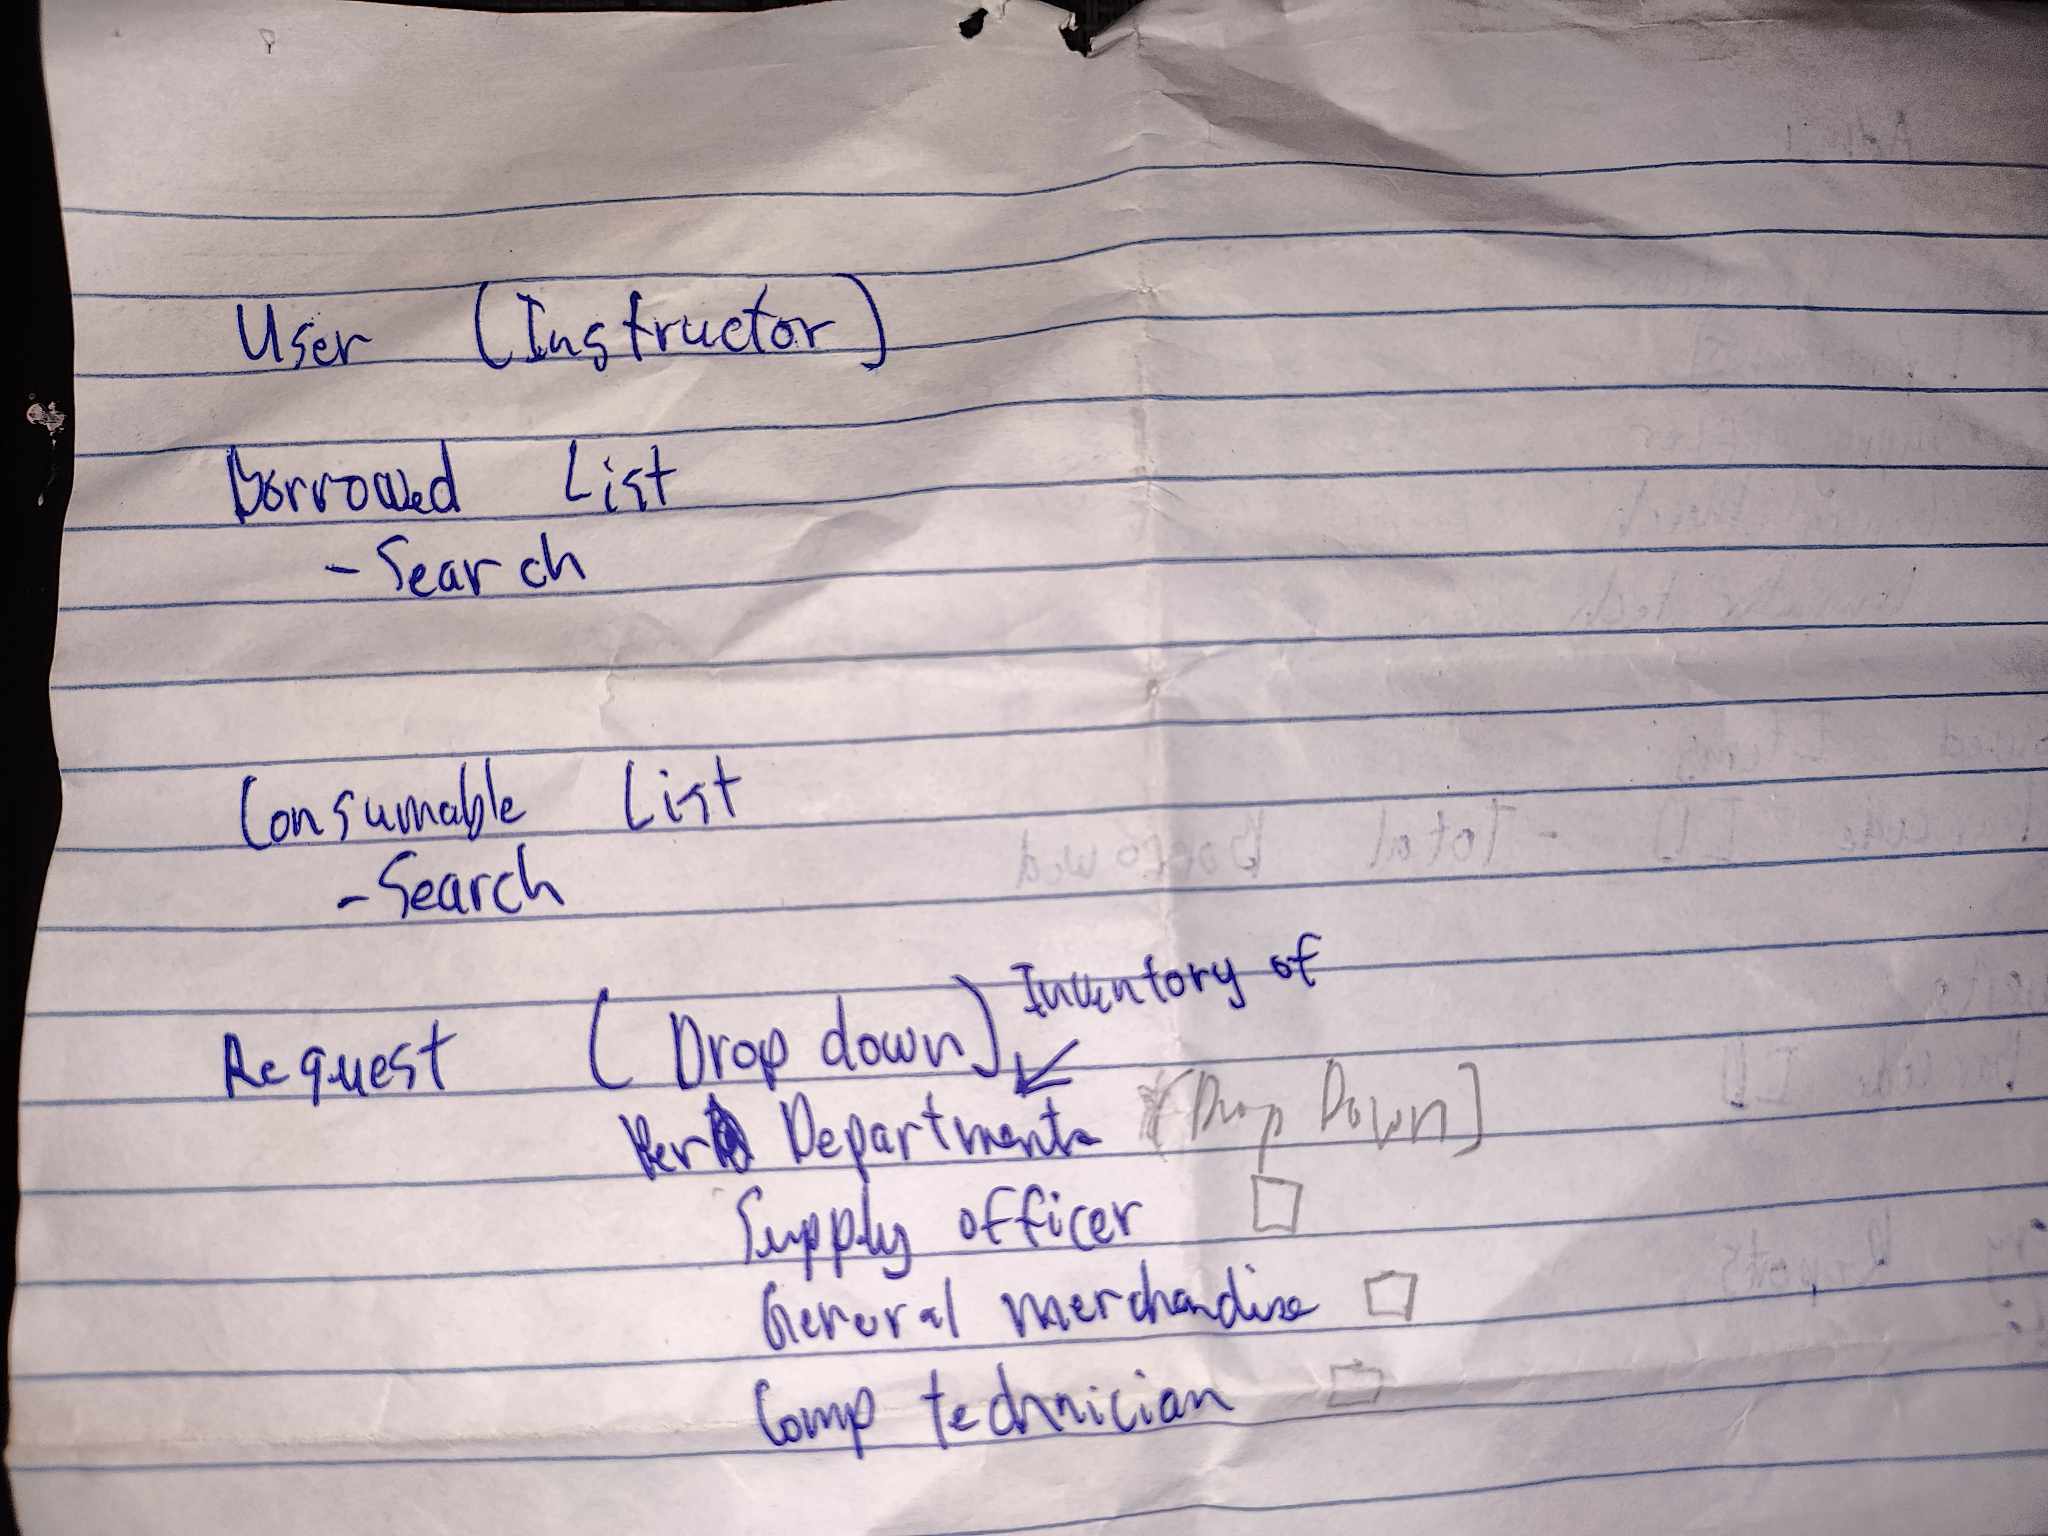 User (Instructor)
Borrowed List
- Search
Consumable List
- Search
Request (Drop down) Inventory of
Per Departments (Drop Down)
Supply officer
General merchandise
Comp technician